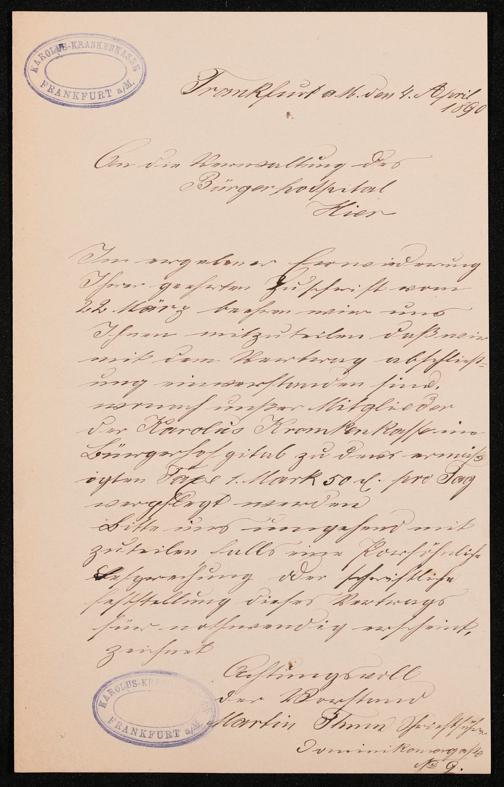 KAROLUS-KRANKENKASSE
FRANKFURT a/M.
Frankfurt a M. den 4. April
1890
An die Verwaltung des
Bürgerhospital
Hier
In ergebener Erwiederung
Ihrer geehrten Zuschrift vom
22 März beehren wir uns
Ihnen mitzuteilen daß wir
mit dem Vertrag abschließ-
ung einverstanden sind,
wonach unsere Mitglieder
der Karolus Krankenkasse im
Bürgerhospital zu dem ermäß
igten Taxe 1. Mark 50 d. pro Tag
verpflegt werden
Bitte uns umgehend mit
zuteilen falls eine Persöhnliche
Besprechung oder schriftliche
feststellung dieses Vertrags
für nothwendig erscheint,
zeichnet
Achtungsvoll
der Vorstand
Martin Schriftführer
Dominikanergasse
No 9.
KAROLUS-KRANKENKASSE
FRANKFURT a/M.